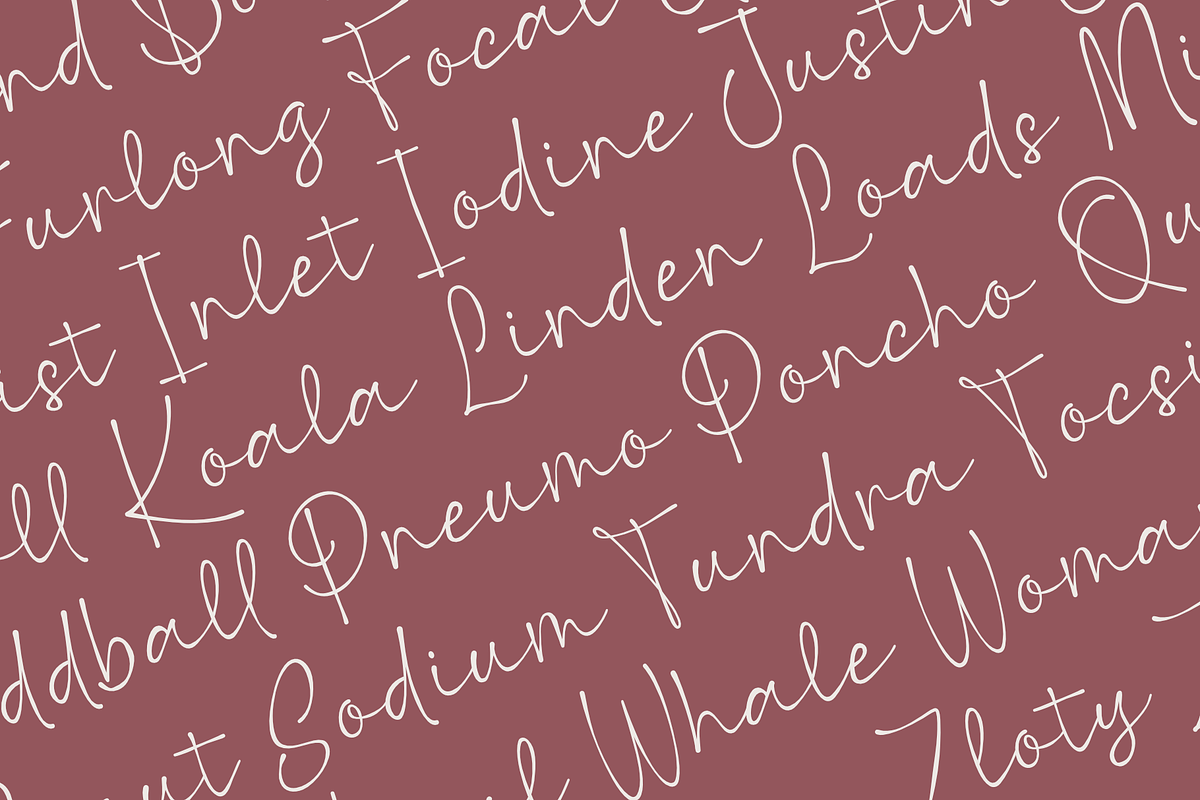 nd
urlong Focal
ist Inlet Iodine Justin
ll Koala Linden Loads Mi
ddball Pneumo Poncho Qu
ut Sodium Tundra Tocsi
Whale Woma
Zloty